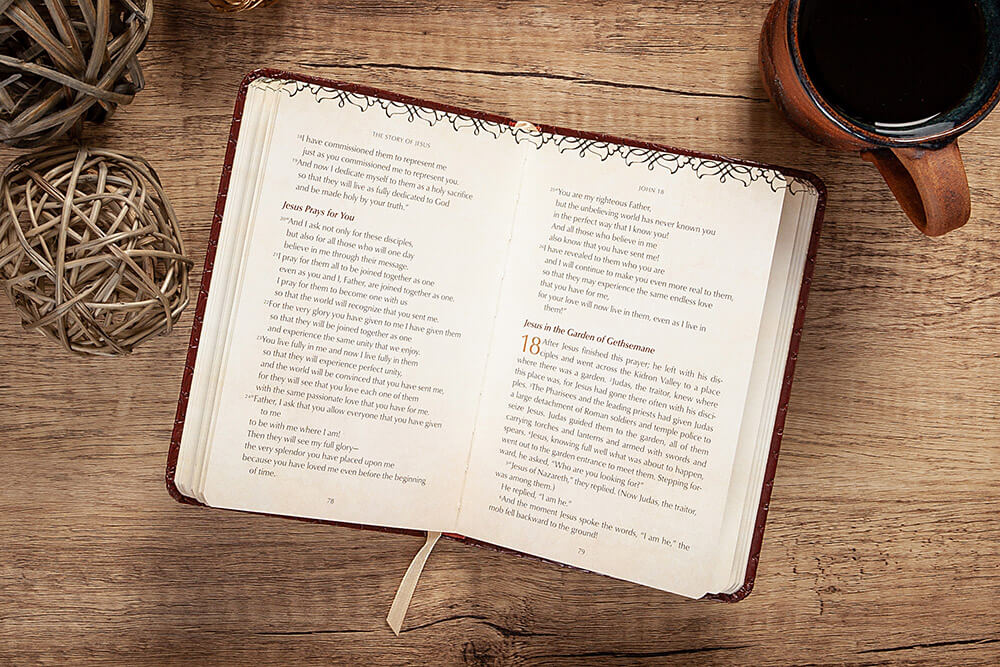 THE STORY OF JESUS
18I have commissioned them to represent me
just as you commissioned me to represent you.
19And now I dedicate myself to them as a holy sacrifice
so that they will live as fully dedicated to God
and be made holy by your truth.”
Jesus Prays for You
20“And I ask not only for these disciples,
but also for all those who will one day
believe in me through their message.
21I pray for them all to be joined together as one
even as you and I, Father, are joined together as one.
I pray for them to become one with us
so that the world will recognize that you sent me.
22For the very glory you have given to me I have given them
so that they will be joined together as one
and experience the same unity that we enjoy.
23You live fully in me and now I live fully in them
so that they will experience perfect unity,
and the world will be convinced that you have sent me,
for they will see that you love each one of them
with the same passionate love that you have for me.
24“Father, I ask that you allow everyone that you have given
to me
to be with me where I am!
Then they will see my full glory—
the very splendor you have placed upon me
because you have loved me even before the beginning
of time.
78
JOHN 18
25“You are my righteous Father,
but the unbelieving world has never known you
in the perfect way that I know you!
And all those who believe in me
also know that you have sent me!
26I have revealed to them who you are
and I will continue to make you even more real to them,
so that they may experience the same endless love
that you have for me,
for your love will now live in them, even as I live in
them!”
Jesus in the Garden of Gethsemane
18 After Jesus finished this prayer, he left with his dis-
ciples and went across the Kidron Valley to a place
where there was a garden. 2Judas, the traitor, knew where
this place was, for Jesus had gone there often with his disci-
ples. 3The Pharisees and the leading priests had given Judas
a large detachment of Roman soldiers and temple police to
seize Jesus. Judas guided them to the garden, all of them
carrying torches and lanterns and armed with swords and
spears. 4Jesus, knowing full well what was about to happen,
went out to the garden entrance to meet them. Stepping for-
ward, he asked, “Who are you looking for?”
5“Jesus of Nazareth,” they replied. (Now Judas, the traitor,
was among them.)
He replied, “I am he.”
6And the moment Jesus spoke the words, “I am he,” the
mob fell backward to the ground!
79